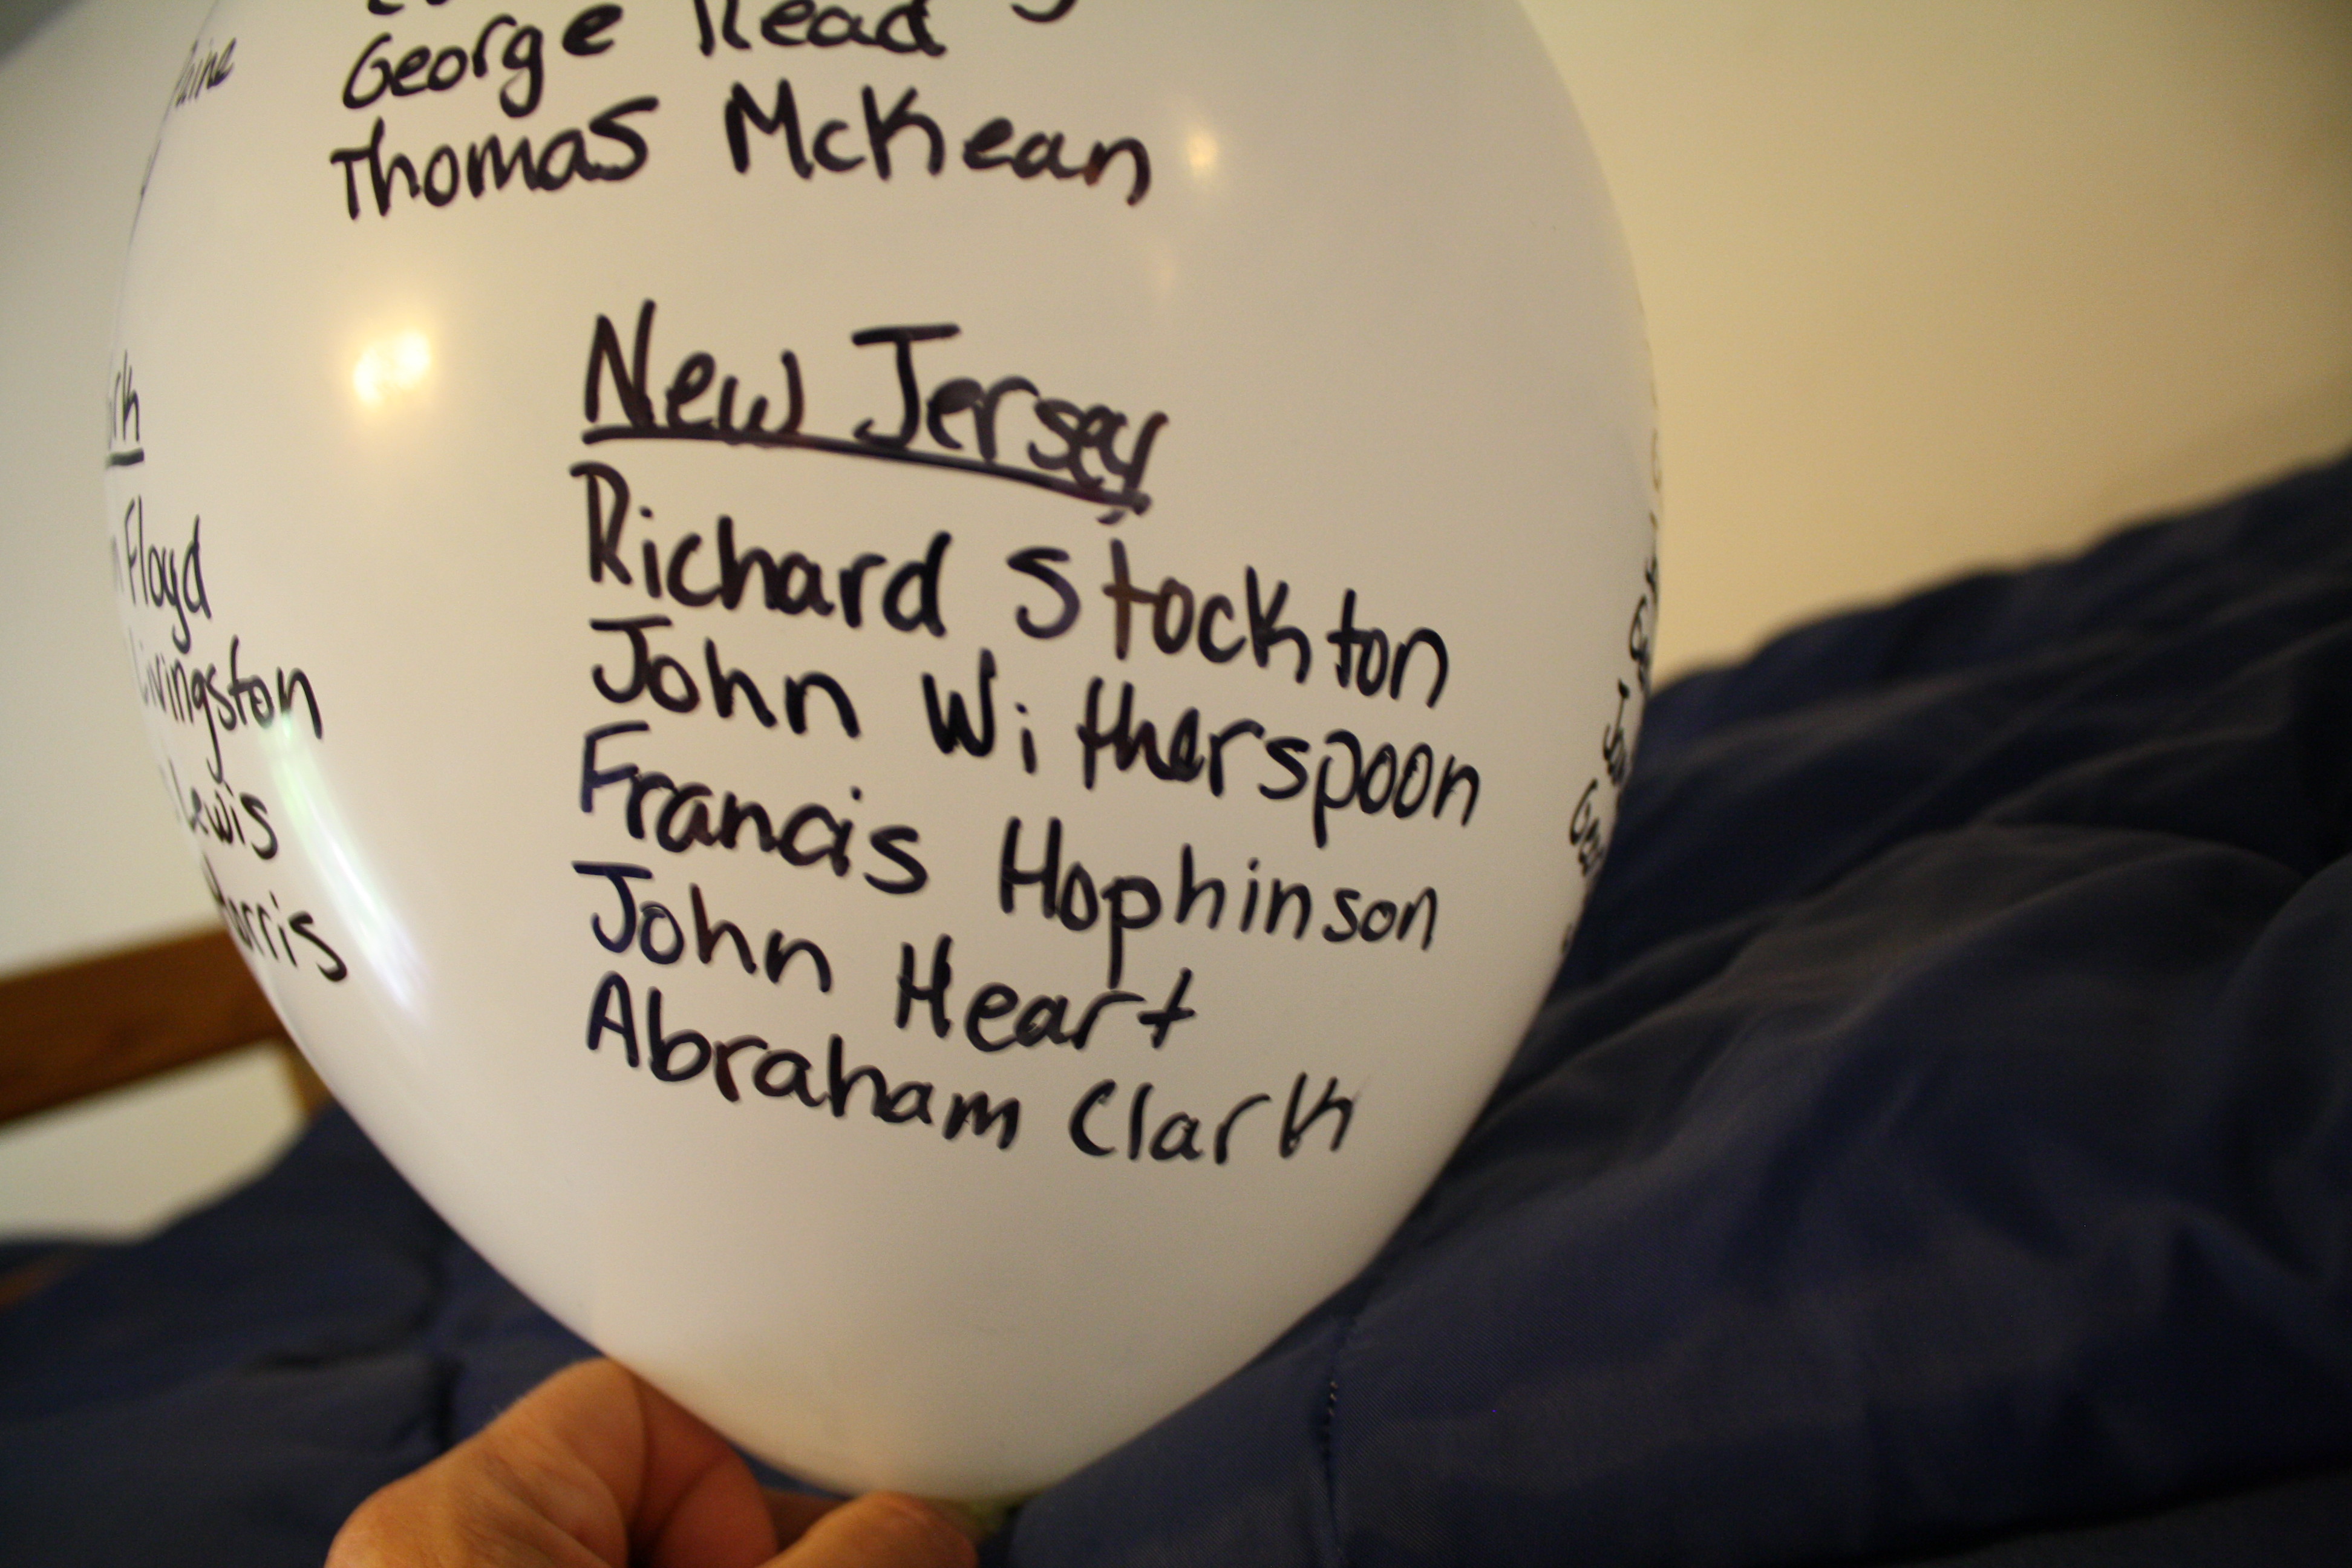 George Read
Thomas McKean
New Jersey
Richard Stockton
John Witherspoon
Francis Hophinson
John Heart
Abraham Clark
Floyd
Livingston
Lewis
Morris